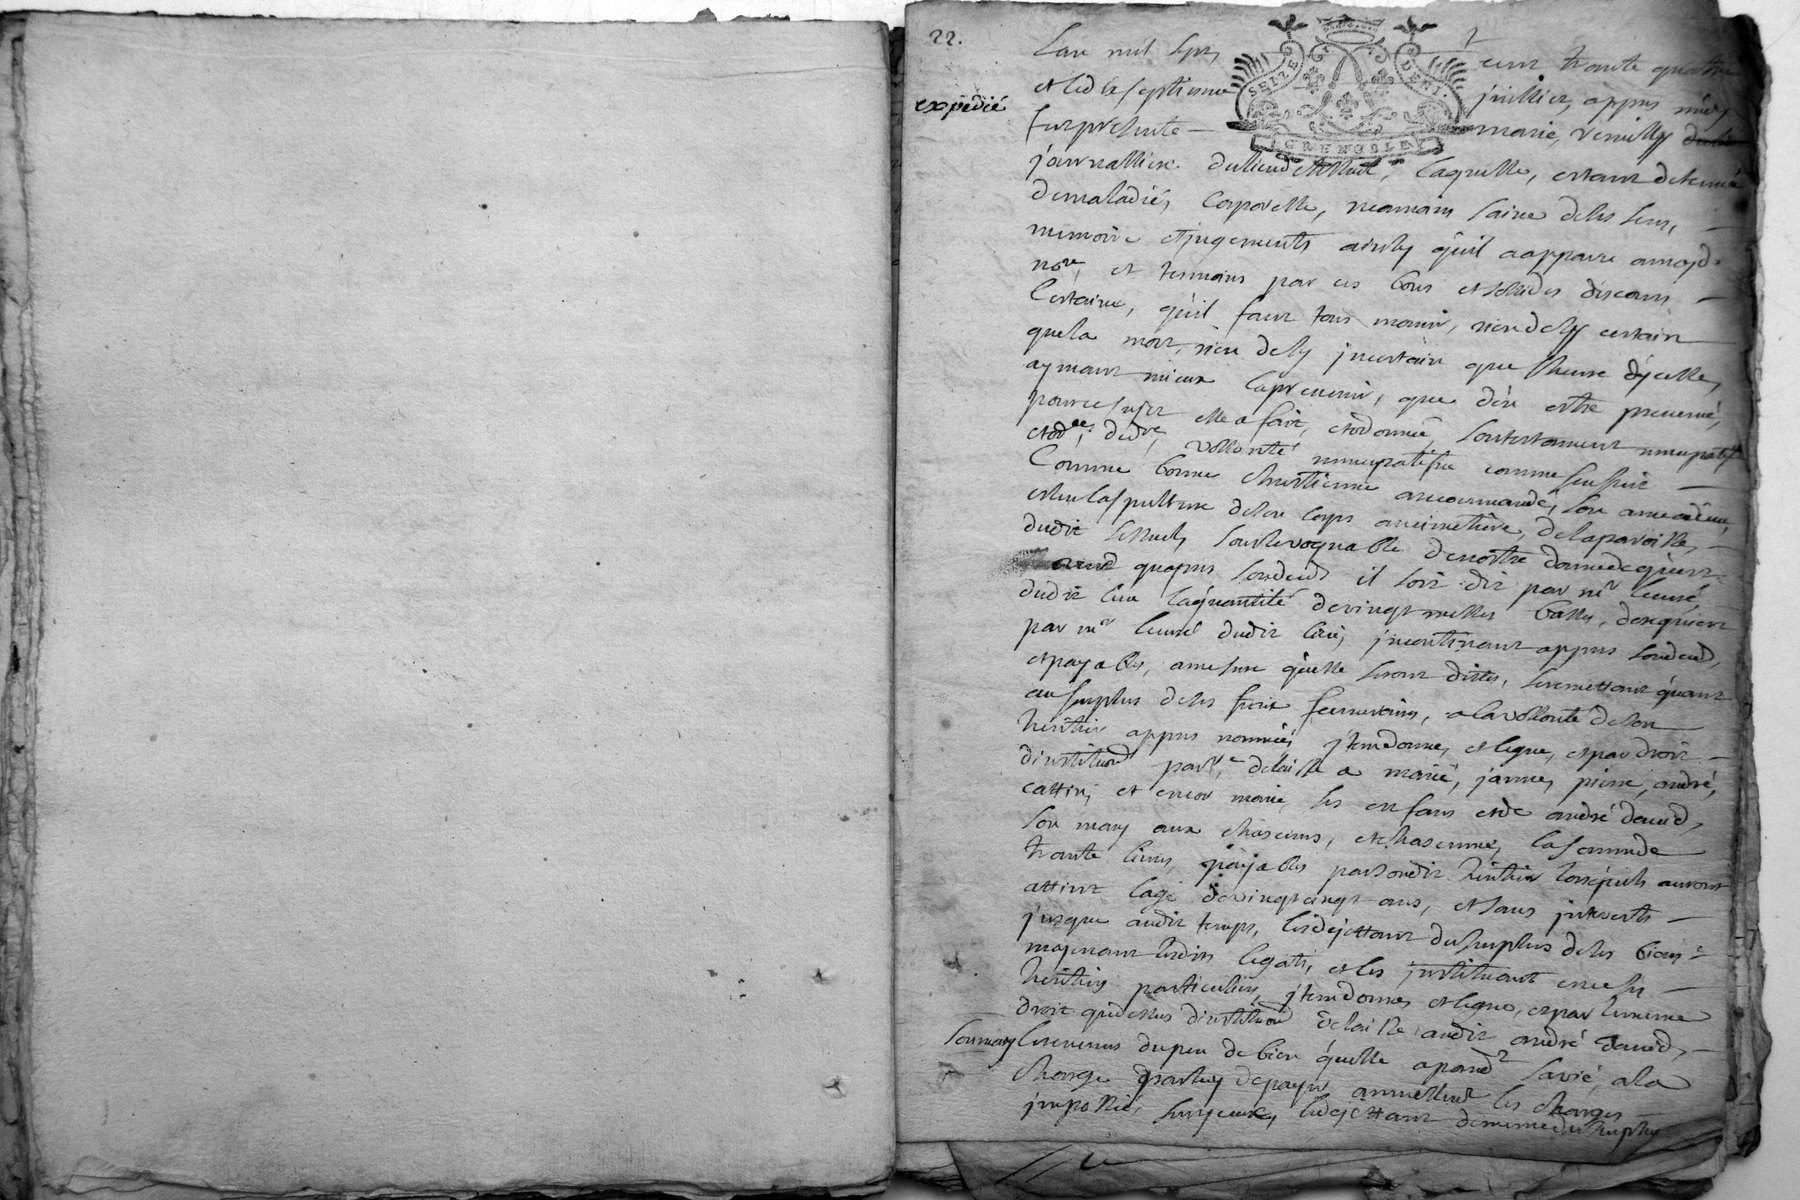 22.
Lan mil sept cent trante quattre
et le dix septiesme juillies appres midy
expédié
fut presente marie remilly
journalliere dulieu de laquelle, estant detenue
de maladies, Corporelle, neamains saine de ses sens,
memoire et jugements ainsy quil a apparu a moyd.
nore, et temoins par ces bons et sollides discours
Certaine, quil faut tous mourir, rien de sy certain
que la mort, rien de sy incertain que lheure dycelle,
aymant mieux la prevenir, que den estre prevenue,
pour ce sujet elle a fait, et ordonné, son testament nuncupatif
et ordre, de dre, vollonté nuncupatifve comme sensuit
Comme bonne chrestienne a recommandé, son ame a dieu,
esleu la sepulture de son corps au cimetiere, de la paroisse,
dudit sous le vocquable de nostre dame de
quappres son deceds il soit dit par mr le curé
dudit lieu la quantité de vingt messes basses,
par mr le curé dudit lieu, incontinant appres son deceds,
et payables, a mesure quelle seront dittes, se remettant quant
au surplus de ses frais funerains, a la vollonté de son
heritier appres nommé, jtem donne, et legue, et par droit
dinstitution partre delaisse a marie, janne, pierre, andré,
cattin, et encor marie ses enfans et de andré david,
son mary aux chascuns, et chascunnes la somme de
trante livres, payables par son dit heritier lorsquils auront
attint lage de vingt cinqt ans, et sans interests
jusque audit temps, les dejettant du surplus de ses biens
moyenant lesdits legats, et les instituant en ce ses
heritiers particuliers, jtem donne, et legue, et par le mesme
droit que dessus dinstitution delaisse audit andré david,
son mary les revenus du peu de bien quelle a pandt sa vie, a la
charge par luy de payer annuellemt les charges
imposses sur yceux, le dejettant de mesme du surplus
SEIZE
DENI.
GRENOBLE